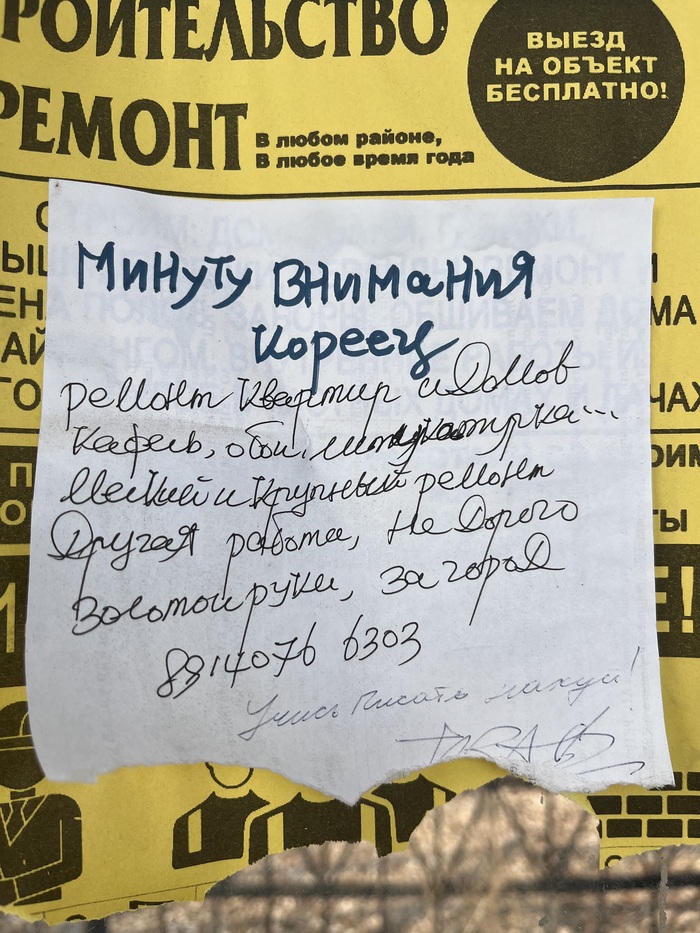 РОИТЕЛЬСТВО
РЕМОНТ
В любом районе,
В любое время года
ВЫЕЗД
НА ОБЪЕКТ
БЕСПЛАТНО!
МИНУТУ ВНИМАНИЯ
Кореец
ремонт Квартир и Домов
Кафель, обои, штукатурка...
Мелкий и Крупный ремонт
Другая работа, не Дорого
Золотой руки, за город
8914076 6303
Учись писать нахуй!